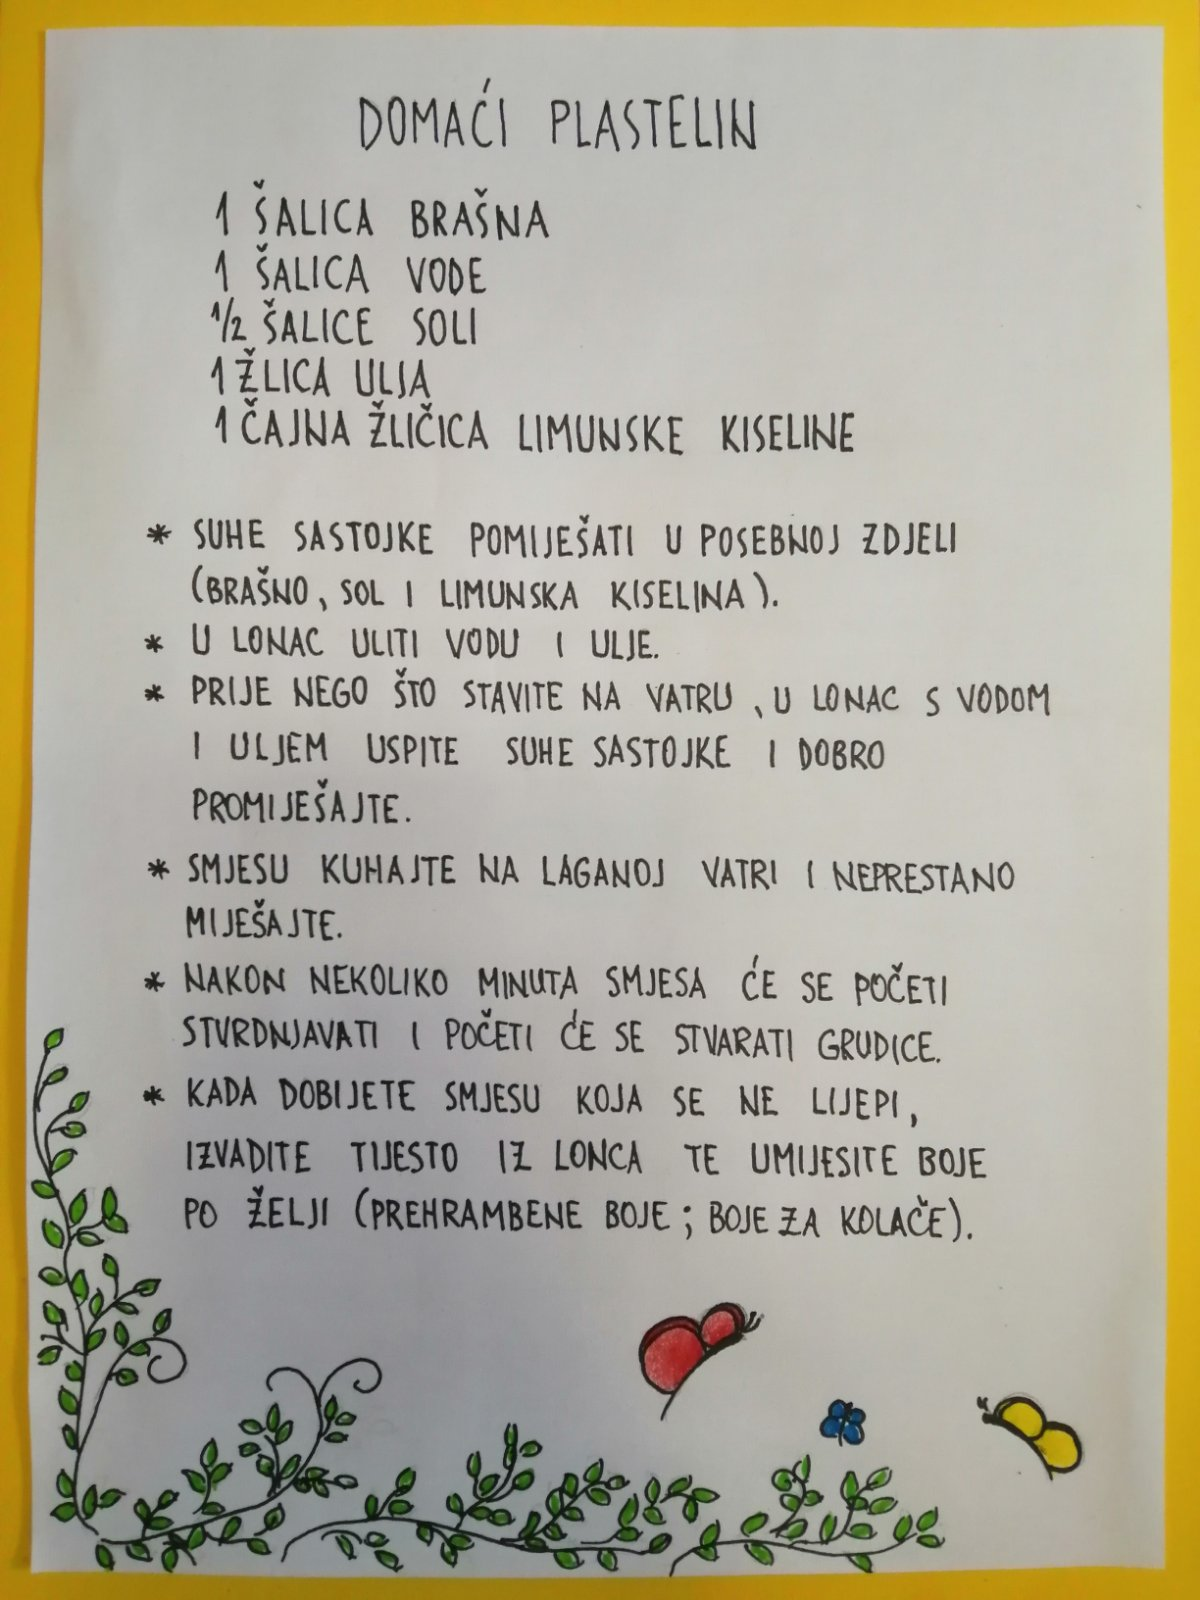 DOMAĆI PLASTELIN
1 ŠALICA BRAŠNA
1 ŠALICA VODE
1/2 ŠALICE SOLI
1 ŽLICA ULJA
1 ČAJNA ŽLIČICA LIMUNSKE KISELINE
* SUHE SASTOJKE POMIJEŠATI U POSEBNOJ ZDJELI
(BRAŠNO, SOL I LIMUNSKA KISELINA).
* U LONAC ULITI VODU I ULJE.
* PRIJE NEGO ŠTO STAVITE NA VATRU, U LONAC S VODOM
I ULJEM USPITE SUHE SASTOJKE I DOBRO
PROMIJEŠAJTE.
* SMJESU KUHAJTE NA LAGANOJ VATRI I NEPRESTANO
MIJEŠAJTE.
* NAKON NEKOLIKO MINUTA SMJESA ĆE SE POČETI
STVRDNJAVATI I POČETI ĆE SE STVARATI GRUDICE.
* KADA DOBIJETE SMJESU KOJA SE NE LIJEPI,
IZVADITE TIJESTO IZ LONCA TE UMIJESITE BOJE
PO ŽELJI (PREHRAMBENE BOJE; BOJE ZA KOLAČE).